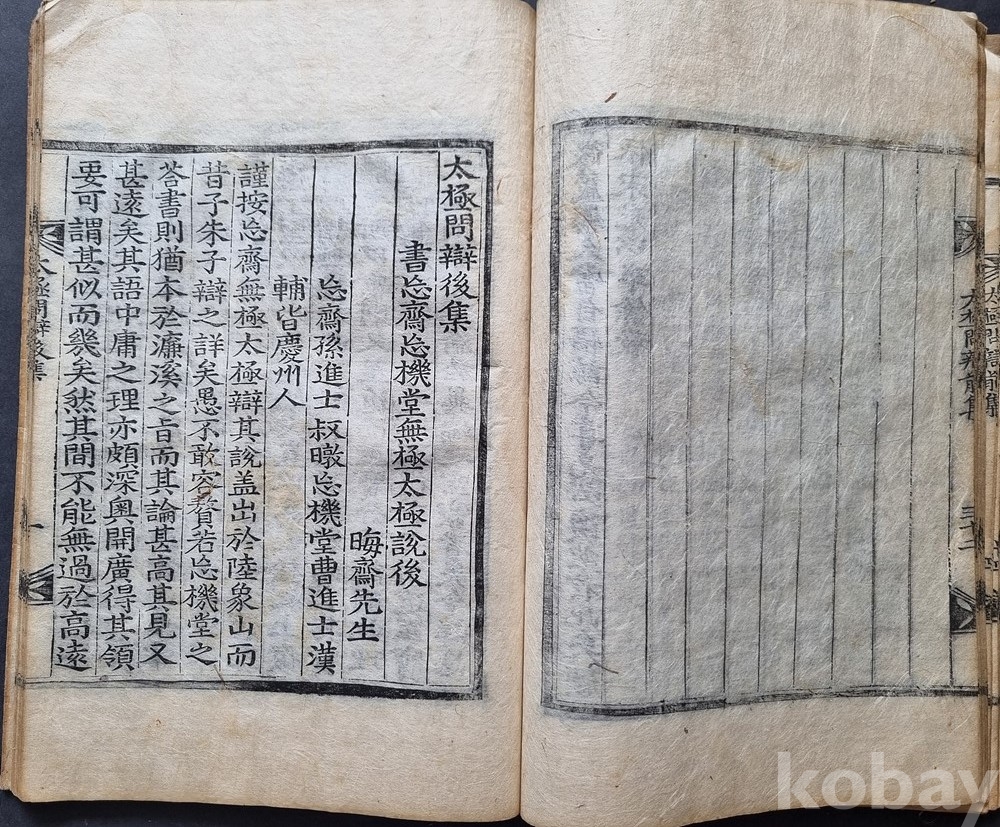 太極問辯後集
書忘齋忘機堂無極太極說後
晦齋先生
忘齋孫進士叔暾忘機堂曹進士漢
輔皆慶州人
謹按忘齋無極太極辯其說盖出於陸象山而
昔子朱子辯之詳矣愚不敢容贅若忘機堂之
荅書則猶本於濂溪之旨而其論甚高其見又
甚遠矣其語中庸之理亦頗深奧開廣得其領
要可謂甚似而幾矣然其間不能無過於高遠
太極問辯後集
一
太極問辯前集
太極問辯前集
kobay